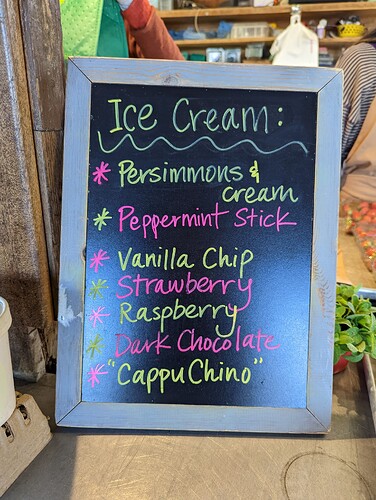 Ice Cream:
* Persimmons &
cream
* Peppermint Stick
* Vanilla Chip
* Strawberry
* Raspberry
* Dark Chocolate
* "CappuChino"